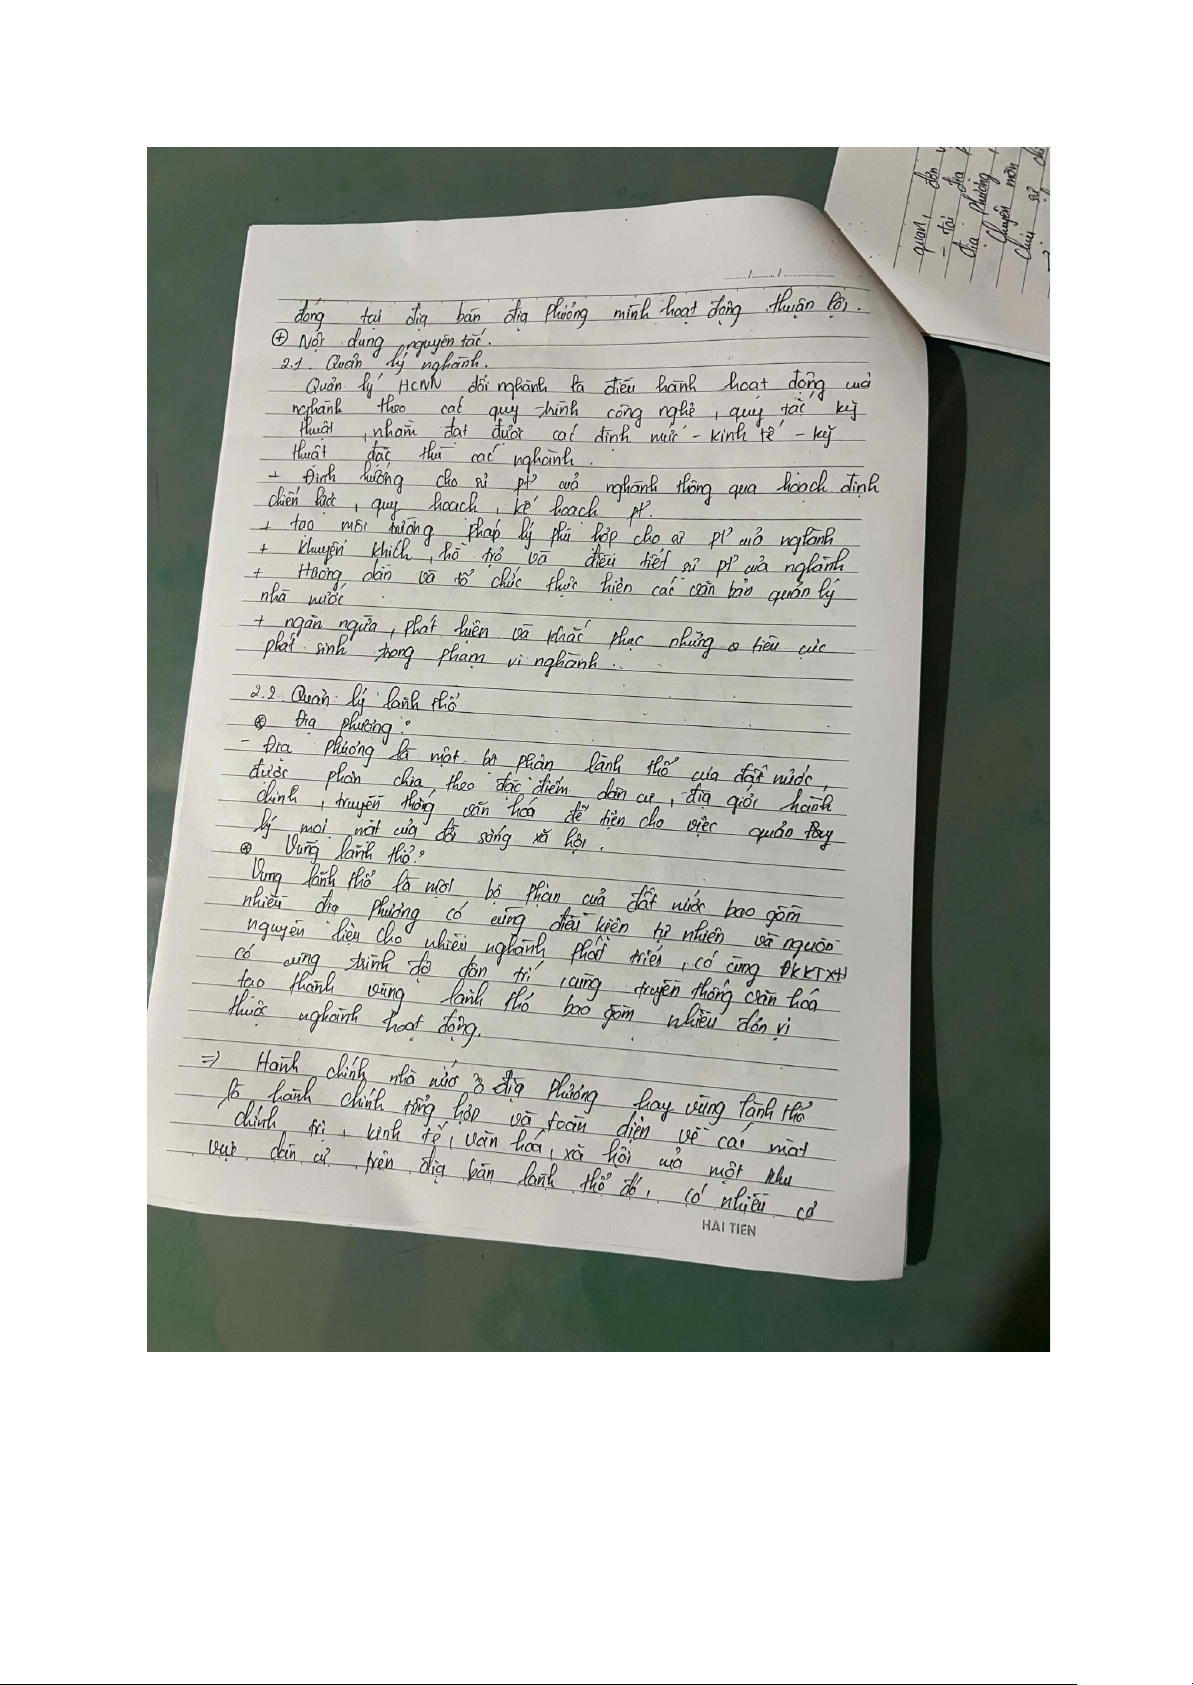 đóng tại địa bàn địa phương mình hoạt động thuận lợi.
⊕ Nội dung nguyên tắc.
2.1. Quản lý nghành.
Quản lý HCNN đối nghành là điều hành hoạt động của
nghành theo các quy trình công nghệ, quy tắc kỹ
thuật, nhằm đạt được các định mức - kinh tế - kỹ
thuật đặc thù các nghành.
+ Định hướng cho sự pt² của nghành thông qua hoạch định
chiến lược, quy hoạch, kế hoạch pt².
+ tạo môi trường pháp lý phù hợp cho sự pt² của nghành
+ khuyến khích, hỗ trợ và điều tiết sự pt² của nghành
+ Hướng dẫn và tổ chức thực hiện các văn bản quản lý
nhà nước
+ ngăn ngừa, phát hiện và khắc phục những tiêu cực
phát sinh trong phạm vi nghành..
2.2. Quản lý lãnh thổ
⊛ Địa phương:
- Địa phương là một bộ phận lãnh thổ của đất nước,
được phân chia theo đặc điểm dân cư, địa giới hành
chính, truyền thống văn hoá để tiện cho việc quản
lý mọi mặt của đời sống xã hội.
⊛ Vùng lãnh thổ:
Vùng lãnh thổ là một bộ phận của đất nước bao gồm
nhiều địa phương có cùng điều kiện tự nhiên và nguồn
nguyên liệu cho nhiều nghành phát triển, có cùng ĐKKTXH
có cùng trình độ dân trí, cùng truyền thống văn hoá
tạo thành vùng lãnh thổ bao gồm nhiều đơn vị
thuộc nghành hoạt động.
=> Hành chính nhà nước ở địa phương hay vùng lãnh thổ
là hành chính tổng hợp và toàn diện về các mặt
chính trị, kinh tế, văn hoá, xã hội của một khu
vực dân cư trên địa bàn lãnh thổ đó, có nhiều cơ
HAI TIEN
quan, đơn
- tại địa
địa phương
chuyên môn